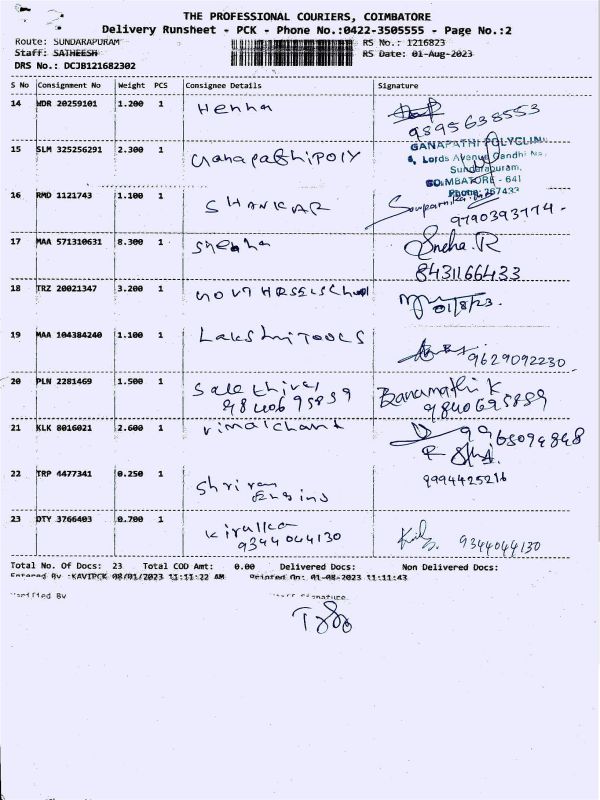 THE PROFESSIONAL COURIERS, COIMBATORE
Delivery Runsheet - PCK - Phone No.:0422-3505555 - Page No.:2
Route: SUNDARAPURAM RS No.: 1216823
Staff: SATHEESH RS Date: 01-Aug-2023
DRS No.: DCJB121682302
S No Consignment No Weight PCS Consignee Details Signature
14 WDR 20259101 1.200 1 Henna
9895638553
15 SLM 325256291 2.300 1 GanapathiPOLY
GANAPATHI POLYCLINIC
Lords Avenue, Gandhi
Sundarapuram,
COIMBATORE - 641
Phone:
16 RMD 1121743 1.100 1 SHANKAR
9790393774-
17 MAA 571310631 8.300 1 Sneha Sneha.R
8431166433
18 TRZ 20021347 3.200 1 01/8/23.
19 MAA 104384240 1.100 1 LakshmiTOOLS
9629092230
20 PLN 2281469 1.500 1 Banumathi K
9840695859 9840695859
21 KLK 8016021 2.600 1 vimalchant
22 TRP 4477341 0.250 1 Shriram 9994425216
23 DTY 3766403 0.700 1
9344044130 9344044130
Total No. Of Docs: 23 Total COD Amt: 0.00 Delivered Docs: Non Delivered Docs:
Entered By :KAVIPCK 08/01/2023 11:11:22 AM Printed On: 01-08-2023 11:11:43
Verified By Staff Signature